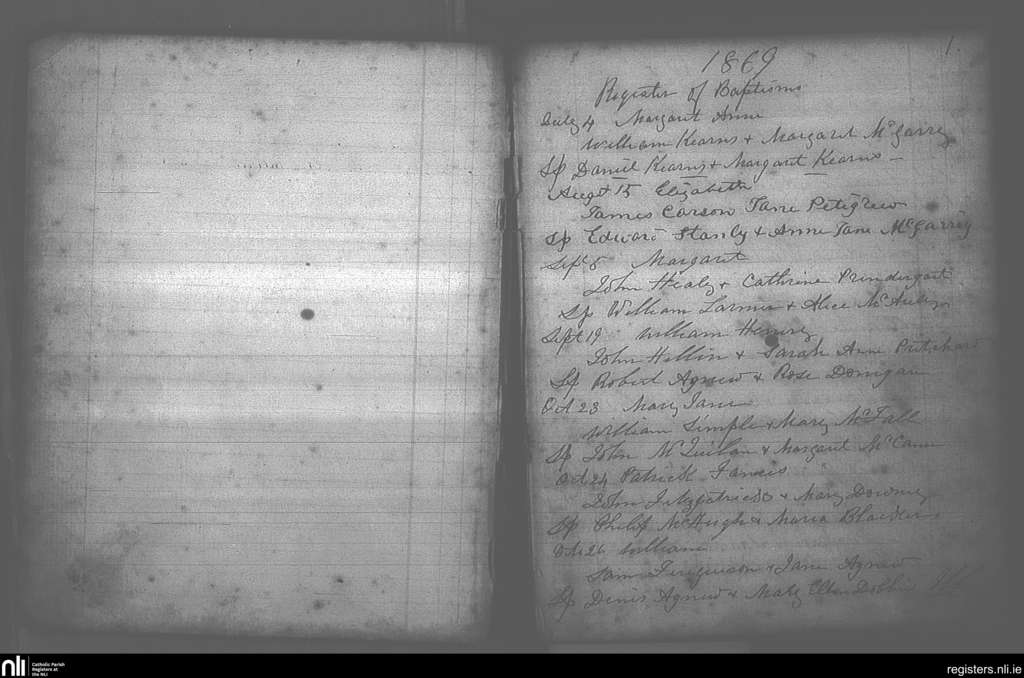 1.
1869
Register of Baptisms
July 4 Margaret Anne
William Kearns + Margaret McGarry
Sp Daniel Kearns + Margaret Kearns
Augst 15 Elizabeth
James Carson Jane Petigrew
Sp Edward Stanly + Anne Jane McGarry
Sept 5 Margaret
John Healy + Cathrine Prindergast
Sp William Larmer + Alice McAuley
Sept 19 William Henry
John Hillin + Sarah Anne Pritchard
Sp Robert Agnew + Rose Donigan
Oct 23 Mary Jane
William Simple + Mary McFall
Sp John McQuillan + Margaret McCann
Oct 24 Patrick Francis
John Fitzpatrick + Mary Downey
Sp Philip McHugh + Maria
Oct 26 William
Sam Ferguson + Jane Agnew
Sp Denis Agnew + Mary Ellen Dobbin
nli Catholic Parish
Registers at
the NLI
registers.nli.ie